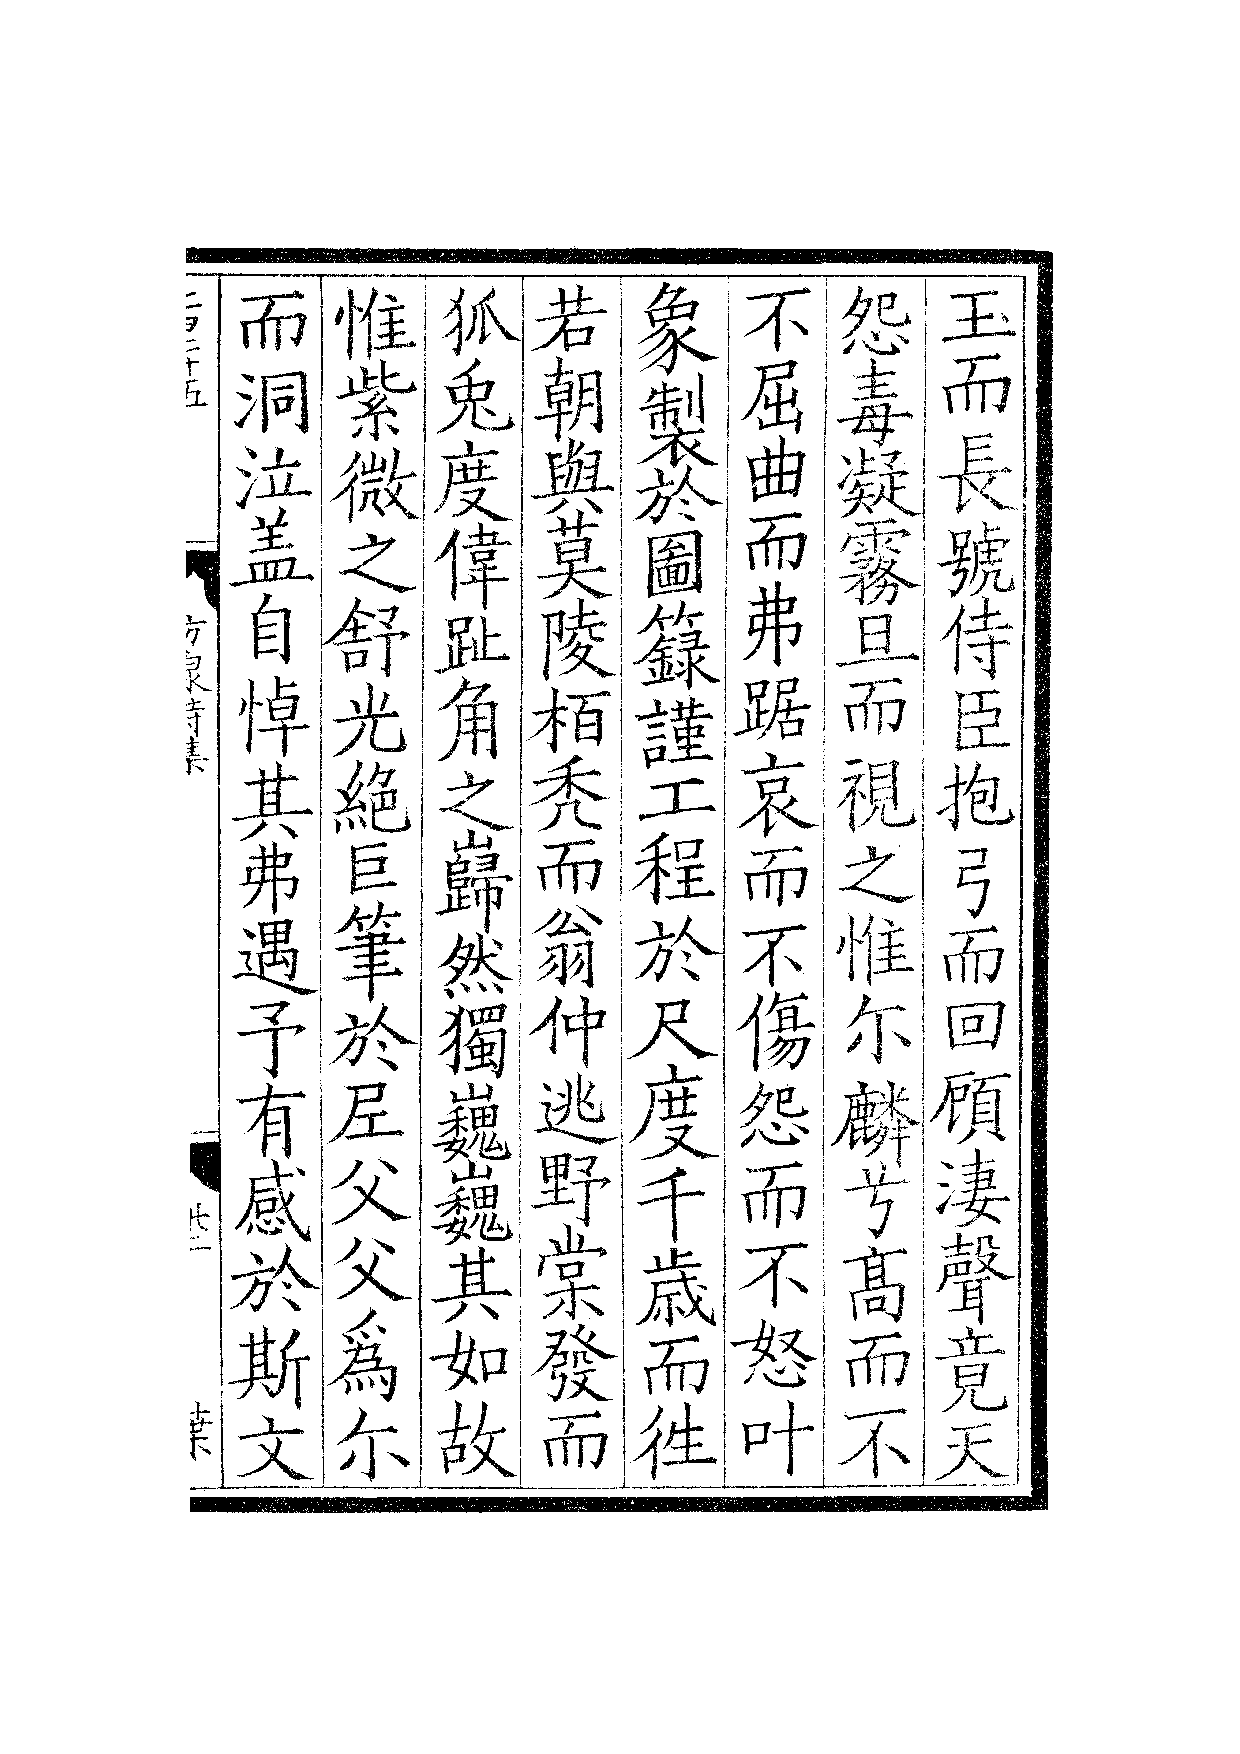 玉而長號侍臣抱弓而回顧淒聲竟天
怨毒凝霧旦而視之惟尔麟兮髙而不
不屈曲而弗踞哀而不傷怨而不怒叶
象製於圖籙謹工程於尺度千歳而徃
若朝與莫陵栢禿而翁仲逃野棠發而
狐兎度偉趾角之巋然獨巍巍其如故
惟紫微之舒光絶巨筆於𡰱父父爲尔
而洞泣盖自悼其弗遇予有感於斯文
方泉詩集
廿二
葉